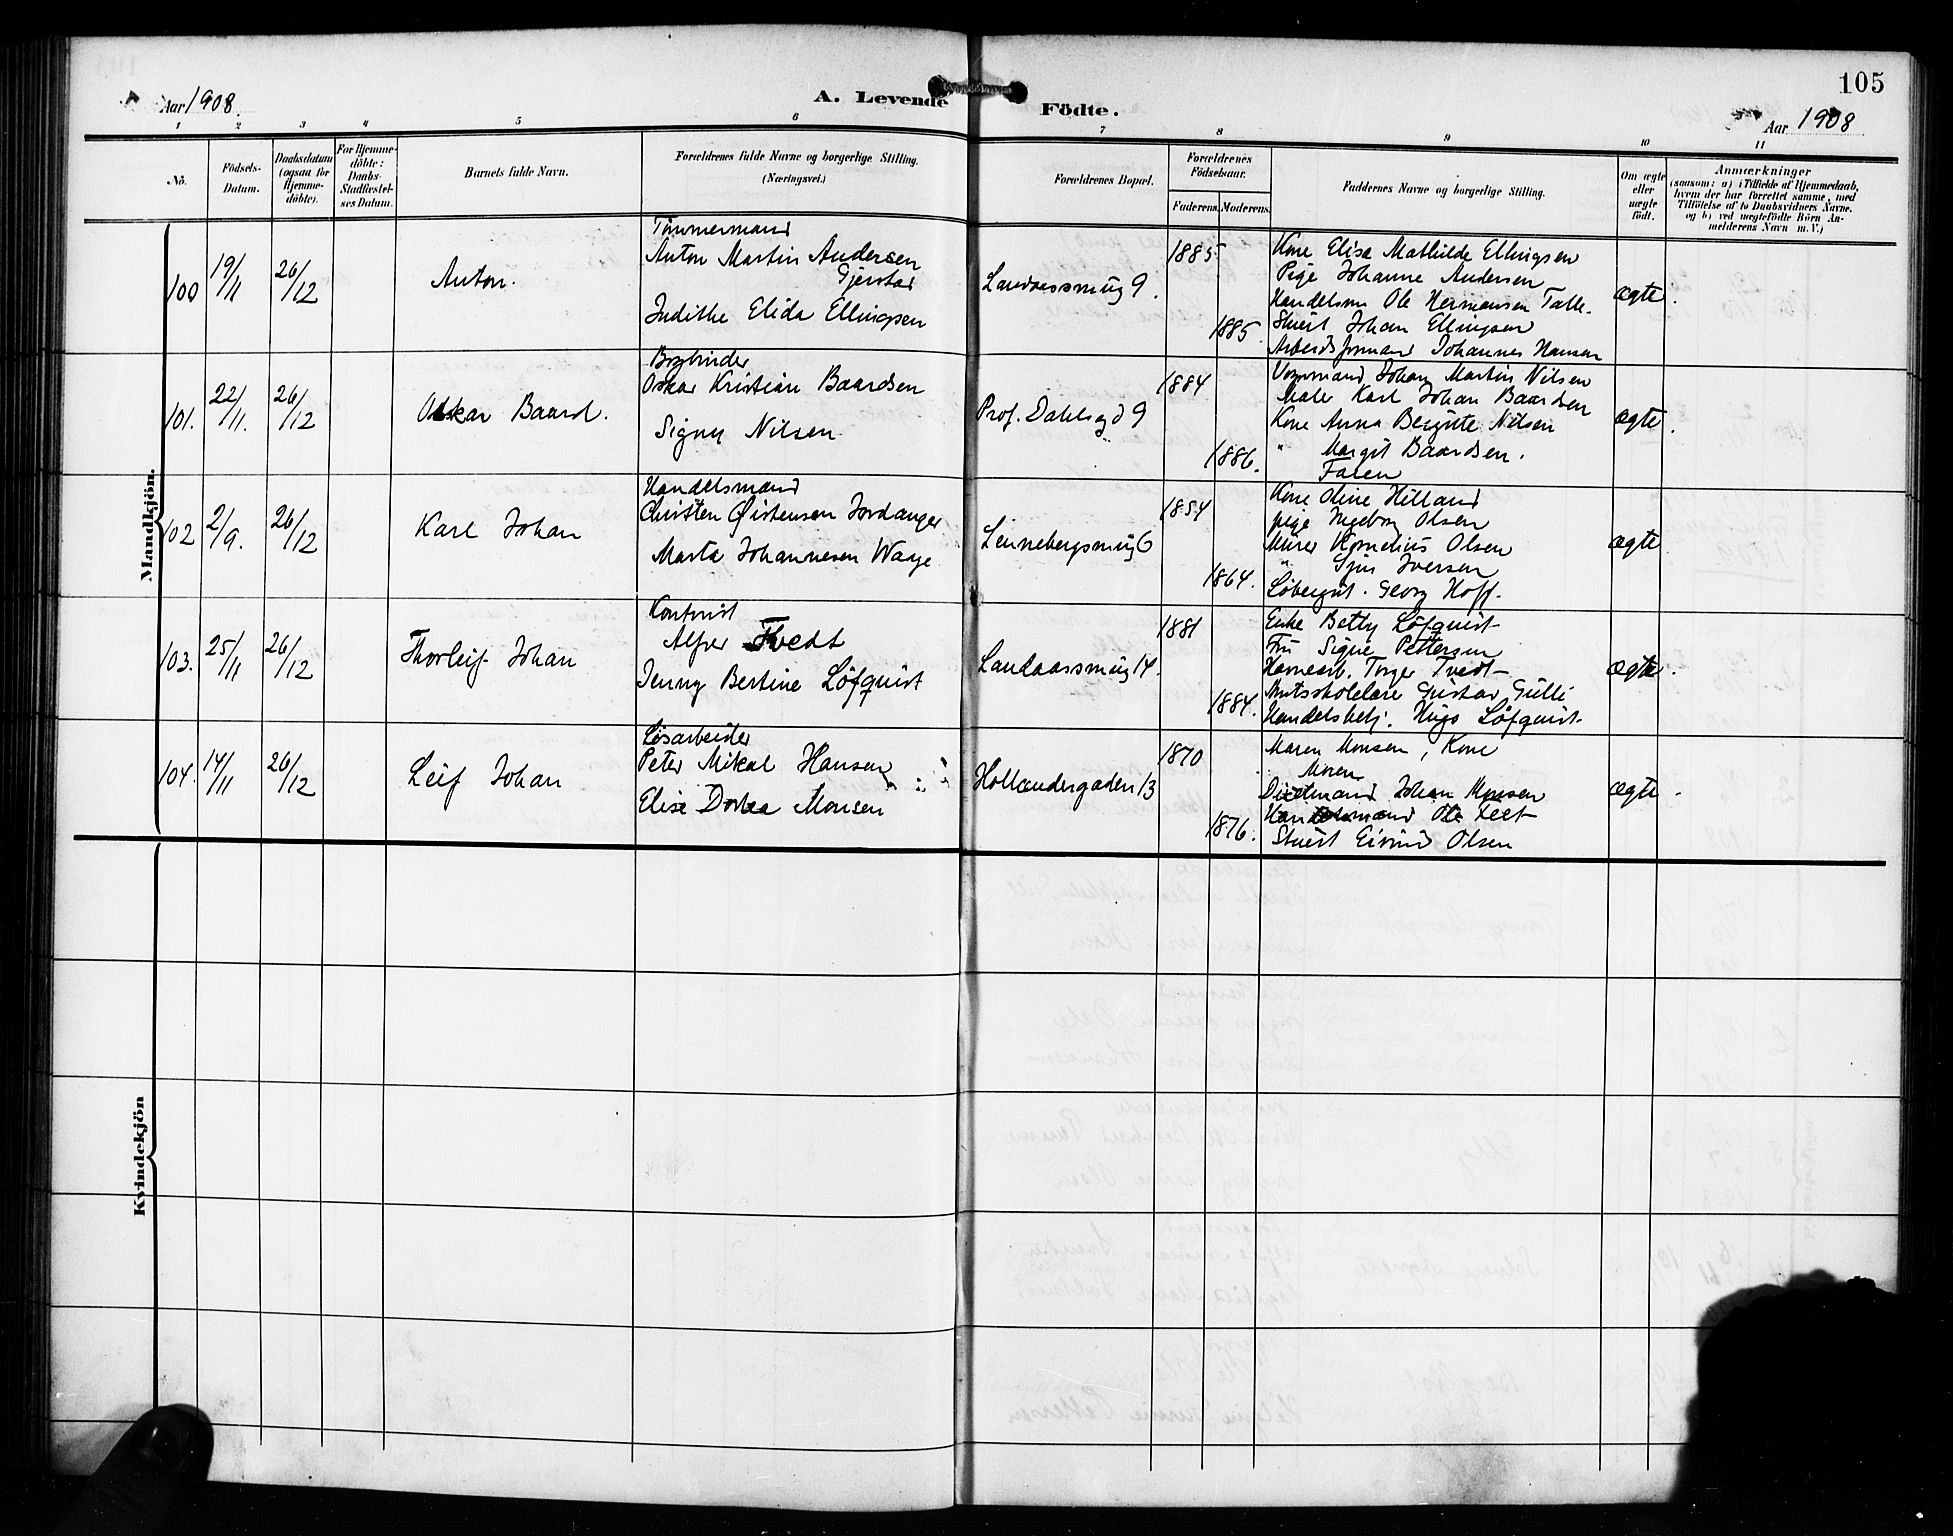 105
Aar 1908.
A. Levende Födte.
Aar 1908
1 2 3 4 5 6 7 8 9 10 11
No.
Födsels-Datum.
Daabsdatum (ogsaa for Hjemmedöbte).
For Hjemmedöbte: Daabs-Stadfæstelses Datum.
Barnets fulde Navn.
Forældrenes fulde Navne og borgerlige Stilling. (Næringsvei.)
Forældrenes Bopæl.
Forældrenes Födselsaar.
Faderens. Moderens.
Faddernes Navne og borgerlige Stilling.
Om ægte eller uægte födt.
Anmærkninger
(saasom: a) i Tilfælde af Hjemmedaab, hvem der har forrettet samme, med Tilföielse af to Daabsvidners Navne, og b) ved uægtefödte Börn Anmelderens Navn m. V.)
Mandkjön.
100 19/11 26/12 Anton.
Tömmermand
Anton Martin Andersen
Gjerstad
Judithe Elida Ellingsen
Landaassmug 9.
1885.
1885.
Kone Elisa Mathilde Ellingsen
Pige Johanne Andersen
Handelsm Ole Hermansen Talle.
Stuert Johan Ellingsen
Arbeidsformand Johannes Hansen
ægte.
101. 22/11. 26/12 Oskar Baard.
Bogbinder
Oskar Kristian Baardsen
Signy Nilsen
Prof. Dahlsgd 9
1884
1886.
Vognmand Johan Martin Nilsen
Maler Karl Johan Baardsen
Kone Anna Bergitte Nilsen
" Margit Baardsen.
Faren
ægte.
102 2/9. 26/12 Karl Johan
Handelsmand
Christen Øistensen Jordanger
Marta Johannesen Waage
Lennebergsmug 6
1854
1864.
Kone Oline Hilland
pige Ingeborg Olsen
Murer Kornelius Olsen
" Iversen
Løbergut. Georg Hoff.
ægte
103. 25/11 26/12 Thorleif Johan
Kontorist
Alfred Tvedt
Jenny Bertine Löfquist
Landaassmug 14.
1881
1884.
Enke Betty Löfquist
Fru Signe Pettersen
Havnearb. Torger Tvedt
Amtsskolelære Gustav Gulli
Handelsbetj. Hugo Löfquist
ægte.
104. 14/11 26/12 Leif Johan
Løsarbeider
Peter Mikal Hansen
Elise Dorthea Monsen
Hollændergaden 13
1870
1876.
Maren Monsen, Kone
Moren
Johan Monsen
Handelsmand Ole
Stuert Eivind Olsen
ægte.
Kvindekjön